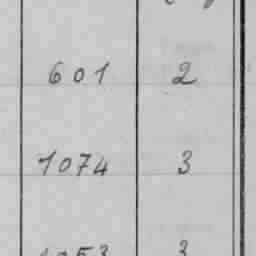 601 2
1074 3
3